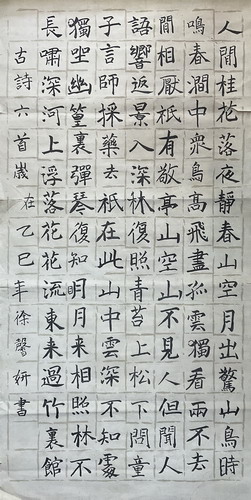 人間桂花落夜靜春山空月出驚山鳥時
鳴春澗中衆鳥高飛盡孤雲獨看兩不去
間相厭祇有敬亭山空山不見人但聞人
語響返景入深林復照青苔上松下問童
子言師採藥去祇在此山中雲深不知處
獨坐幽篁裏彈琴復知明月来相照林不
長嘯深河上浮落花花流東来過竹裏館
古詩六首歲在乙巳年徐馨妍書